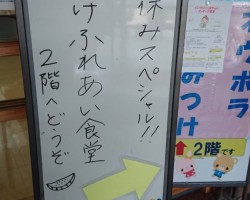 休みスペシャル!!
けふれあい食堂
2階へどうぞ
ボラ
みつけ
2階です